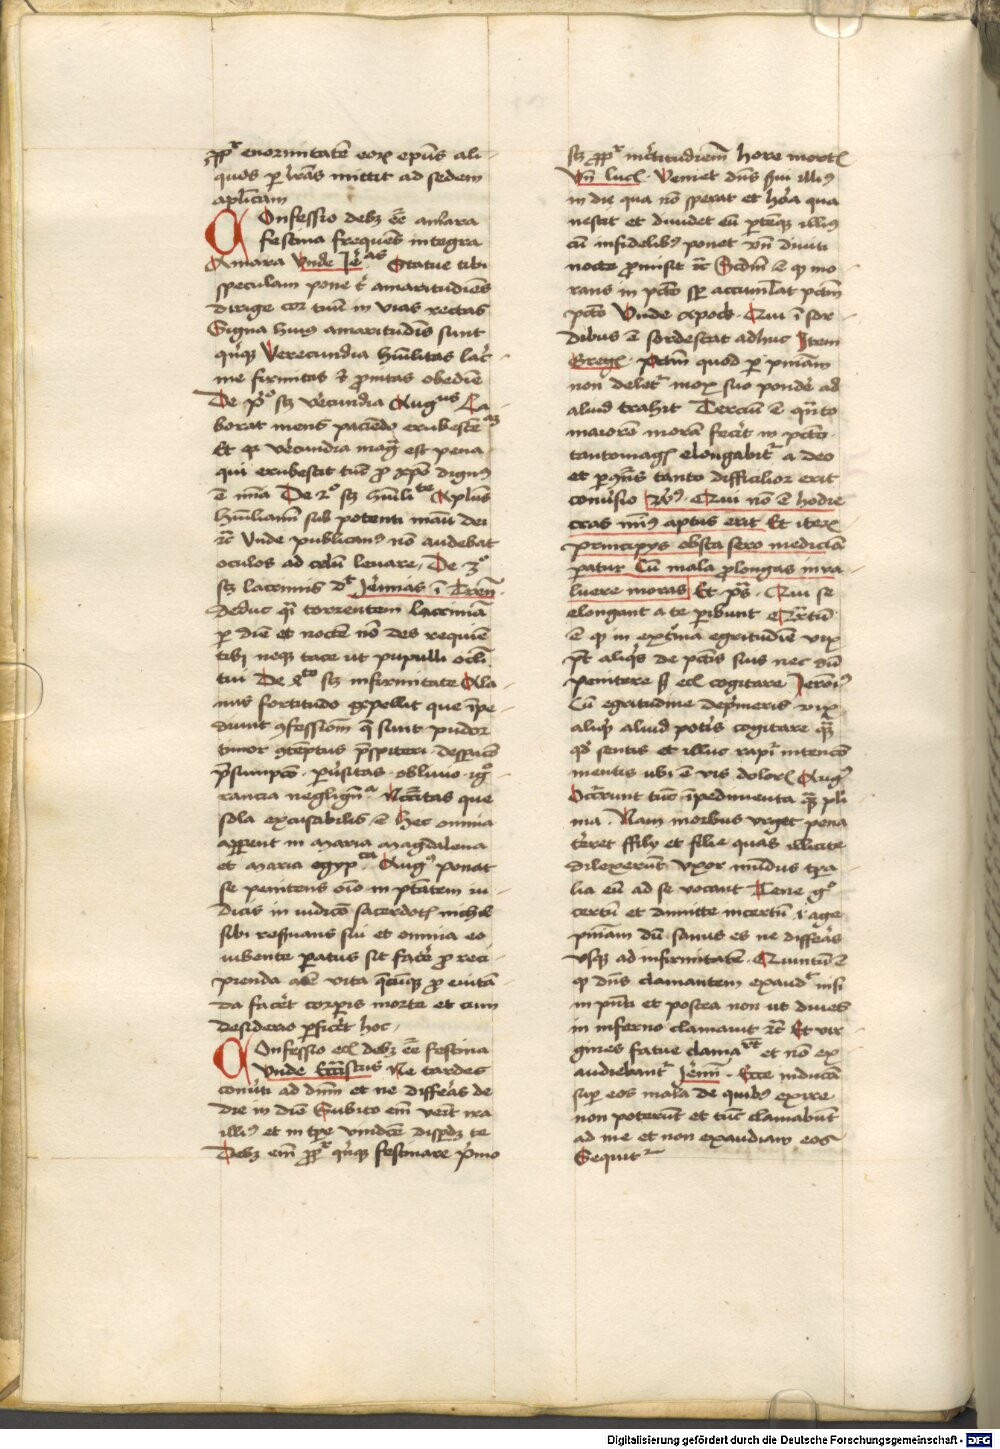 ꝓpt̉ enormitatē eoꝝ ep̄us ali-
quos ꝑ lr̄as mittit ad sedem
apl̄icam
Confessio debꝫ eē amara
festina frequēs integra
Amara Vnde Jeᵃˢ Statue tibi
speculam pone t̉ amaritudīes
dirige cor tuū in vias rectas
Signa huiꝰ amaritudīs sunt
qn̄qꝫ Verecundia hūilitas lac̉-
me firmitas et ꝓnitas obediē
De pº sꝫ v̉ecundia Augᵘˢ La-
borat mens paciendo erubescēᵃᵐ
Et qꝛ v̉ecundia mag̉ est pena
qui erubescit tūc ꝓ xp̄o dignꝰ
ē mīa De 2º sꝫ hūiliᵗᵉ Apl̄us
Hūiliamī sub potenti manu dei
ꝛc̄ Vnde publicanꝰ nō audebat
oculos ad celū leuare. De 3º
sꝫ lacrimis dt̄ Jer̉mias ī Tren̄
deduc qͣ̄i torrentem lacrimā
ꝑ diē et noctē nō des requiē
tibi neqꝫ tace at pupulli ocl̄i
tui De 4ᵗᵒ sꝫ infirmitate Ala-
nus fortitudo expellit que īpe-
diunt ꝯfessioēm q̄ sunt pudor
timor ꝯtēptus p̄spiteri desꝑaco
p̄sumpco ꝑu̓sitas obliuio igº-
rancia neglign̄ᵃ Nc̄c̄itas que
sola excusabilis ē Hec omnia
apparent in maria magdalena
et maria egypᶜᵃ Augꝰ ponat
se penitens oīo in ptāte m iu-
dicis in iudico sacerdotꝭ nichil
sibi reseruans sui et omnia eo
iubente ꝑatus sit facer̉ ꝓ reci-
pienda aīe vita q̄cūqꝫ ꝓ euitā-
da facer̉t corꝑis morte et cum
desiderio ꝑficer̉t hoc.
Confessio ecl̄ debꝫ eē festina
Vnde Ecc̄iscus Ne tardes
conu̓ti ad dn̄m et ne differ̉as de
die in diē Subito em̄ vēit ira
illiꝰ et in tꝑe vindcē disꝑdꝫ te
Debꝫ em̄ ꝓpt̉ qn̄qꝫ festinare p̉mo
sꝫ ꝓpt̉ inc̉titudinēm hore mortꝭ
Vn̄ luc. Veniet dn̄s sui illiꝰ
in die qua nō sperat et hor̉a qua
nescit et diuidet eū ꝑtēqꝫ illiꝰ
cū infidelibꝰ ponet vn̄ diuiti
nocte ꝓmisit ꝛc̄ Scdm̄ ē qꝫ mo-
rans in pctō sꝑ accumlat pctm̄
pctō Vnde apock. Qui ī sor-
dibus ē sordescat adhuc Item
Greg̉. Pctm̄ quod ꝑ pniam
non delet̉ mox suo ponder̉ ad
aliud trahit Tercium ē qn̄to
maiorē morā fecit in pctō
tantomagꝭ elongabit̉ a deo
et ꝑꝯn̄s tanto difficilior erit
conu̓sio vers̉ꝰ. Qui nō ē hodie
cras minꝰ aptus erit Et itex̄
principijs obsta sero medicīa
ꝑatur Cū mala ꝓlongas inua-
luere moras Et ps̄. Qui se
elongant a te ꝑibunt Qͣ̄rtum
ē qꝫ in extrema egritudīe vix
pt̄ aliqͥs de pctīs suis nec dū
penitere sꝫ ecl̄ cogitare Jeroīꝰ
Cū egritudine dep̓meris vix
aliqͥd aliud potis cogitare qͣ̄ꝫ
qd̓ sentis et illuc rapit̉ intencō
mentis ubi ē vis dolorꝭ Augꝰ
Occurrunt tūc īpedimenta qͣ̄ꝫ pl̄i-
ma. Nam morbus vrget pena
t̓ret ffilij et filie quas illicite
dilexerunt vxor mūdus tꝑa-
lia eū ad se vocant Tene gº
certū et dimitte incertū ⁊ age
pniam dū sanus es ne differ̉as
vsqꝫ ad infirmitatē. Quintum ē
qꝫ dn̄s clamantem exaud̉ nisi
in pn̄ti et postea non ut diues
in inferno clamauit ꝛc̄ Et vir-
gines fatue clamaᵘᵉ̄ᵗ et nō ex-
audiebant̉ Jerm̄. Ecce inducā
suꝑ eos mala de quibꝰ exire
non poterunt et tūc clamabunt
ad me et non exaudiam eos
Sequit̉
Digitalisierung gefördert durch die Deutsche Forschungsgemeinschaft - DFG